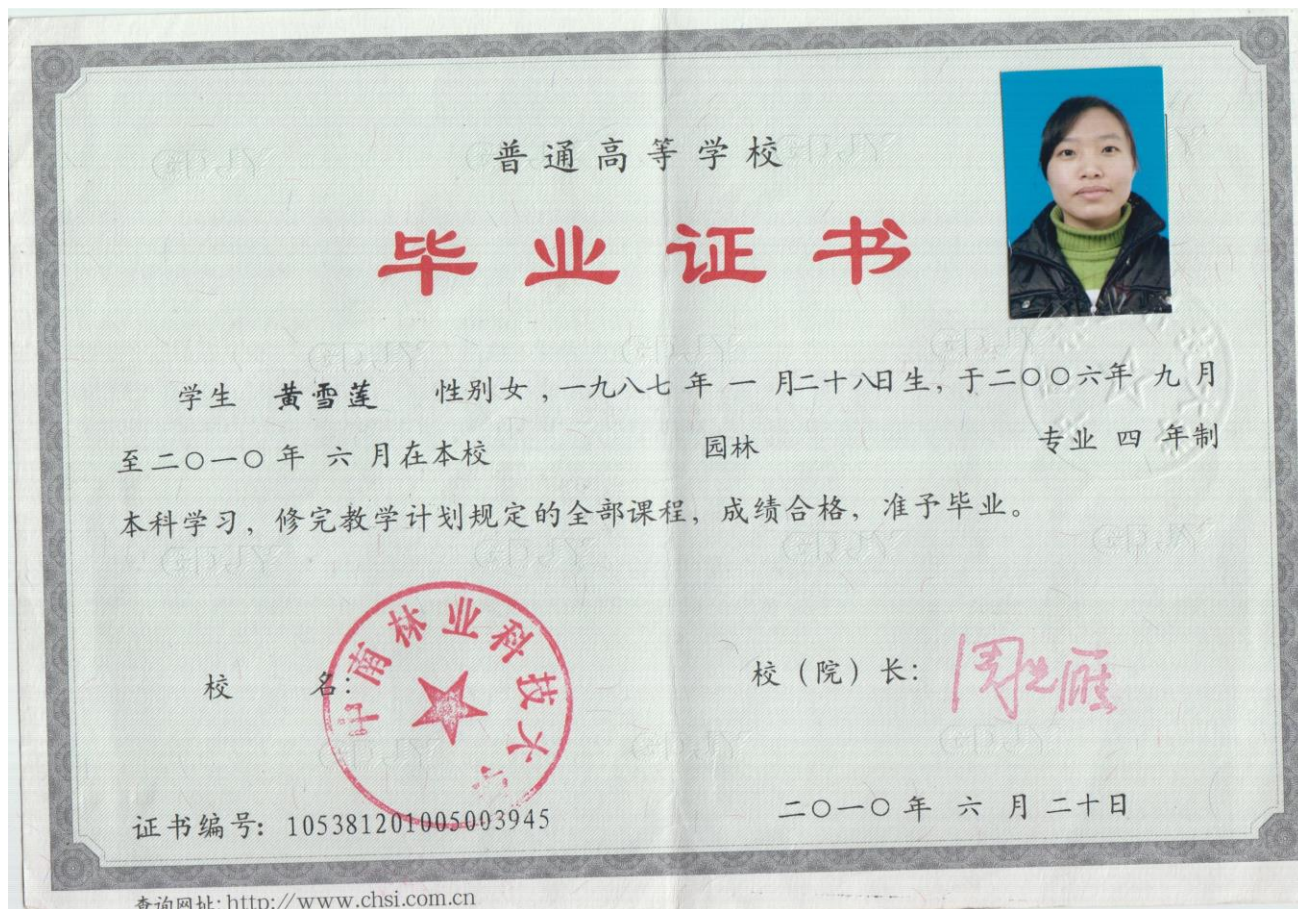 普通高等学校
毕业证书
学生 黄雪莲 性别女，一九八七年一月二十八日生，于二〇〇六年九月
至二〇一〇年六月在本校 园林 专业四年制
本科学习，修完教学计划规定的全部课程，成绩合格，准予毕业。
校 名：
中南林业科技大学
校（院）长：
周先雁
证书编号：105381201005003945
二〇一〇年六月二十日
查询网址：http://www.chsi.com.cn